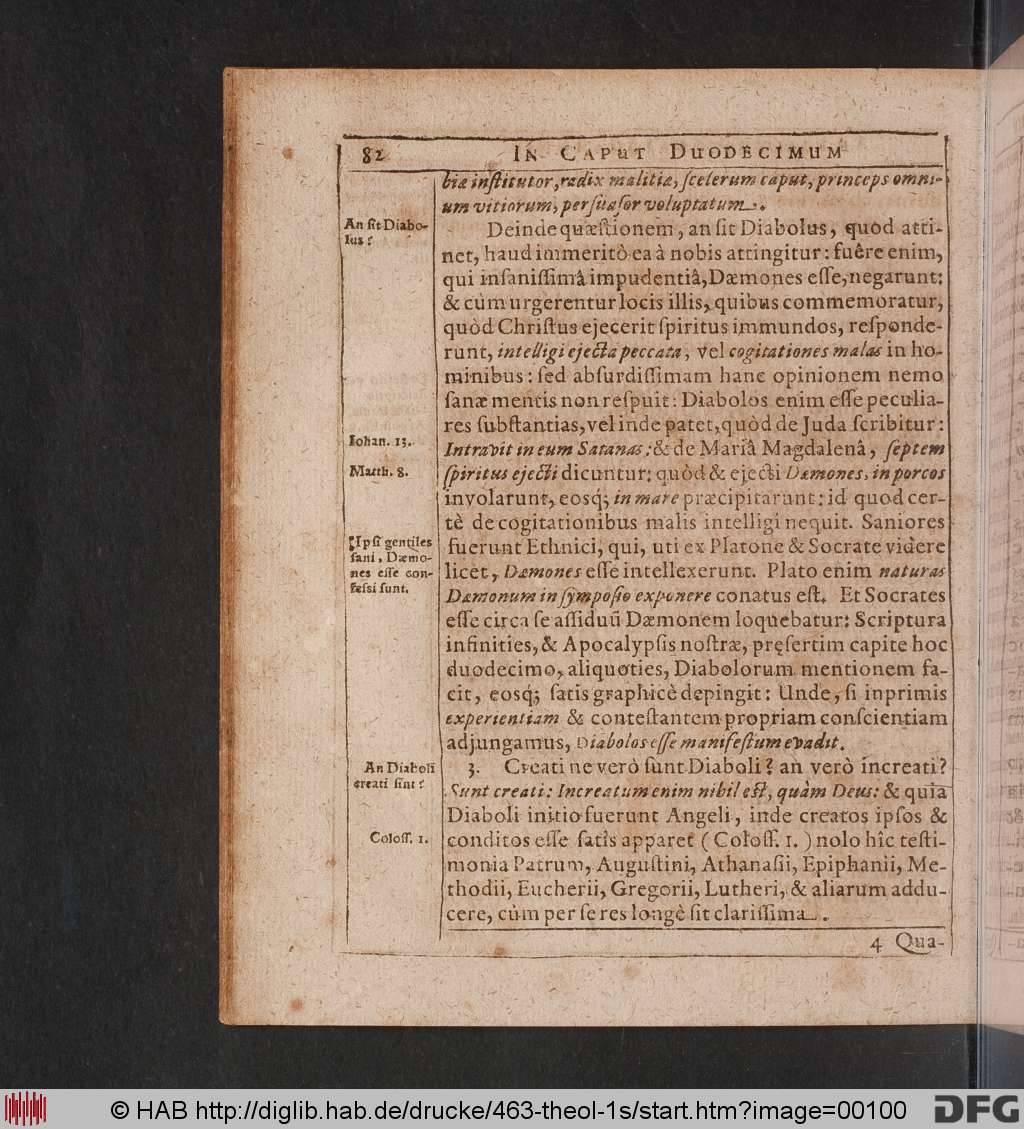 82 IN CAPUT DUODECIMUM
biæ inſtitutor, radix malitiæ, ſcelerum caput, princeps omni-
um vitiorum, perſuaſor voluptatum.
An ſit Diabo-
lus?
Deinde quæſtionem, an ſit Diabolus, quod atti-
net, haud immeritò ea à nobis attingitur: fuêre enim,
qui inſaniſſimâ impudentiâ, Dæmones eſſe, negarunt;
& cùm urgerentur locis illis, quibus commemoratur,
quòd Chriſtus ejecerit ſpiritus immundos, reſponde-
runt, intelligi ejecta peccata, vel cogitationes malas in ho-
minibus: ſed abſurdiſſimam hanc opinionem nemo
ſanæ mentis non reſpuit: Diabolos enim eſſe peculia-
res ſubſtantias, vel inde patet, quòd de Juda ſcribitur:
Iohan. 13.
Intravit in eum Satanas; & de Mariâ Magdalenâ, ſeptem
Matth. 8.
ſpiritus ejecti dicuntur: quòd & ejecti Dæmones, in porcos
involarunt, eosq́; in mare præcipitarunt: id quod cer-
tè de cogitationibus malis intelligi nequit. Saniores
Ipſi gentiles
ſani, Dæmo-
nes eſſe con-
feſsi ſunt.
fuerunt Ethnici, qui, uti ex Platone & Socrate videre
licet, Dæmones eſſe intellexerunt. Plato enim naturas
Dæmonum in ſympoſio exponere conatus eſt. Et Socrates
eſſe circa ſe aſſiduũ Dæmonem loquebatur: Scriptura
infinities, & Apocalypſis noſtræ, pręſertim capite hoc
duodecimo, aliquoties, Diabolorum mentionem fa-
cit, eosq́; ſatis graphicè depingit: Unde, ſi inprimis
experientiam & conteſtantem propriam conſcientiam
adjungamus, Diabolos eſſe manifeſtum evadit.
An Diaboli
creati ſint?
3. Creati ne verò ſunt Diaboli? an verò increati?
Sunt creati: Increatum enim nihil eſt, quàm Deus: & quia
Diaboli initio fuerunt Angeli, inde creatos ipſos &
Coloſſ. 1.
conditos eſſe ſatis apparet (Coloſſ. 1.) nolo hîc teſti-
monia Patrum, Auguſtini, Athanaſii, Epiphanii, Me-
thodii, Eucherii, Gregorii, Lutheri, & aliarum addu-
cere, cùm per ſe res longè ſit clariſſima.
4 Qua-
© HAB http://diglib.hab.de/drucke/463-theol-1s/start.htm?image=00100
DFG